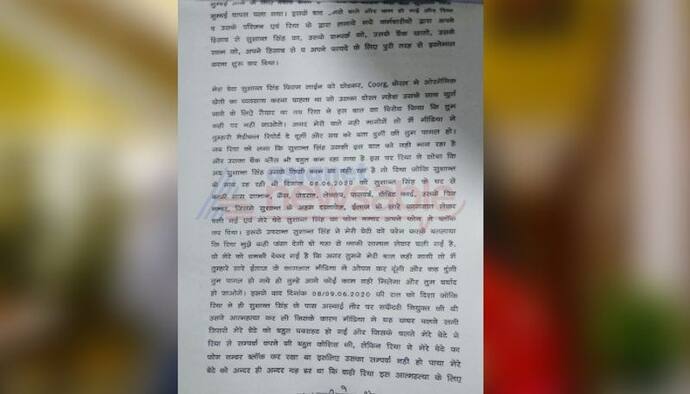 मुम्बई वापस चला गया। इसके बाद
व उसके परिजन एवं रिया के द्वारा
हिसाब से सुशान्त सिंह का, उसके सम्पर्क को, उसके बैंक खातों, उसके
को, अपने हिसाब से व अपने फायदे के लिए पुरी तरह से इस्तेमाल
करना शुरू कर दिया।
मेरा बेटा सुशान्त सिंह फिल्म लाईन को छोड़कर, Coorg, केरल में ओरगेनिक
खेती का व्यवसाय करना चाहता था जो उसका दोस्त महेश उसके साथ कुर्ग
जाने के लिए तैयार था तब रिया ने इस बात का विरोध किया कि तुम
कही पर नहीं जाओगे। अगर मेरी बात नहीं मानोगे तो मैं मीडिया में
तुम्हारी मेडीकल रिपोर्ट दे दूंगी और सब को बता दुंगी की तुम पागल हो।
जब रिया को लगा कि सुशान्त सिंह उसकी इस बात को नहीं मान रहा है
और उसका बैंक बैलेंस भी बहुत कम रह गया है इस पर रिया ने सोचा कि
अब सुशान्त सिंह उसके किसी काम का नहीं रहा है तो रिया जोकि सुशान्त
के साथ रह रही थी दिनांक 08.06.2020 को सुशान्त सिंह के घर से
काफी सारा सामान, कैश, जेवरात, लेपटाप, पासवर्ड, क्रेडिट कार्ड, उसके पिन
नम्बर, जिसमें सुशान्त के अहम दस्तावेज, ईलाज के सारे कागजात लेकर
चली गई एवं मेरे बेटे सुशान्त सिंह का फोन नम्बर अपने फोन से ब्लॉक
कर दिया। इसके उपरान्त सुशान्त सिंह ने मेरी बेटी को फोन करके बतलाया
कि रिया मुझे कही फंसा देगी वो यहां से काफी सामान लेकर चली गई है,
वो मेरे को धमकी देकर गई है कि अगर तुमने मेरी बात नहीं मानी तो मैं
तुम्हारे सारे ईलाज के कागजात मीडिया में ओपन कर दूंगी और कह दूंगी
तुम पागल हो गये हो तुम्हे आगे कोई काम नहीं मिलेगा और तुम बर्बाद
हो जाओगे। इसके बाद दिनांक 08/09.06.2020 की रात को दिशा जोकि
रिया ने ही सुशान्त सिंह के पास अस्थाई तौर पर सक्रेटरी नियुक्त की थी
उसने आत्महत्या कर ली जिसके कारण मीडीया में यह खबर चलने लगी
जिससे मेरे बेटे को बहुत घबराहट हो गई और जिसके चलते मेरे बेटे ने
रिया से सम्पर्क करने की बहुत कोशिश की, लेकिन रिया ने मेरे बेटे का
फोन नम्बर ब्लॉक कर रखा था इसलिए उसका सम्पर्क नही हो पाया मेरे
बेटे को अन्दर ही अन्दर यह डर था कि कही रिया इस आत्महत्या के लिए